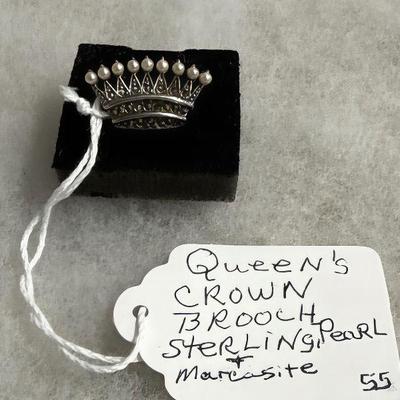 Queen's
CROWN
BROOCH
STERLING, PEARL
+
Marcasite 55